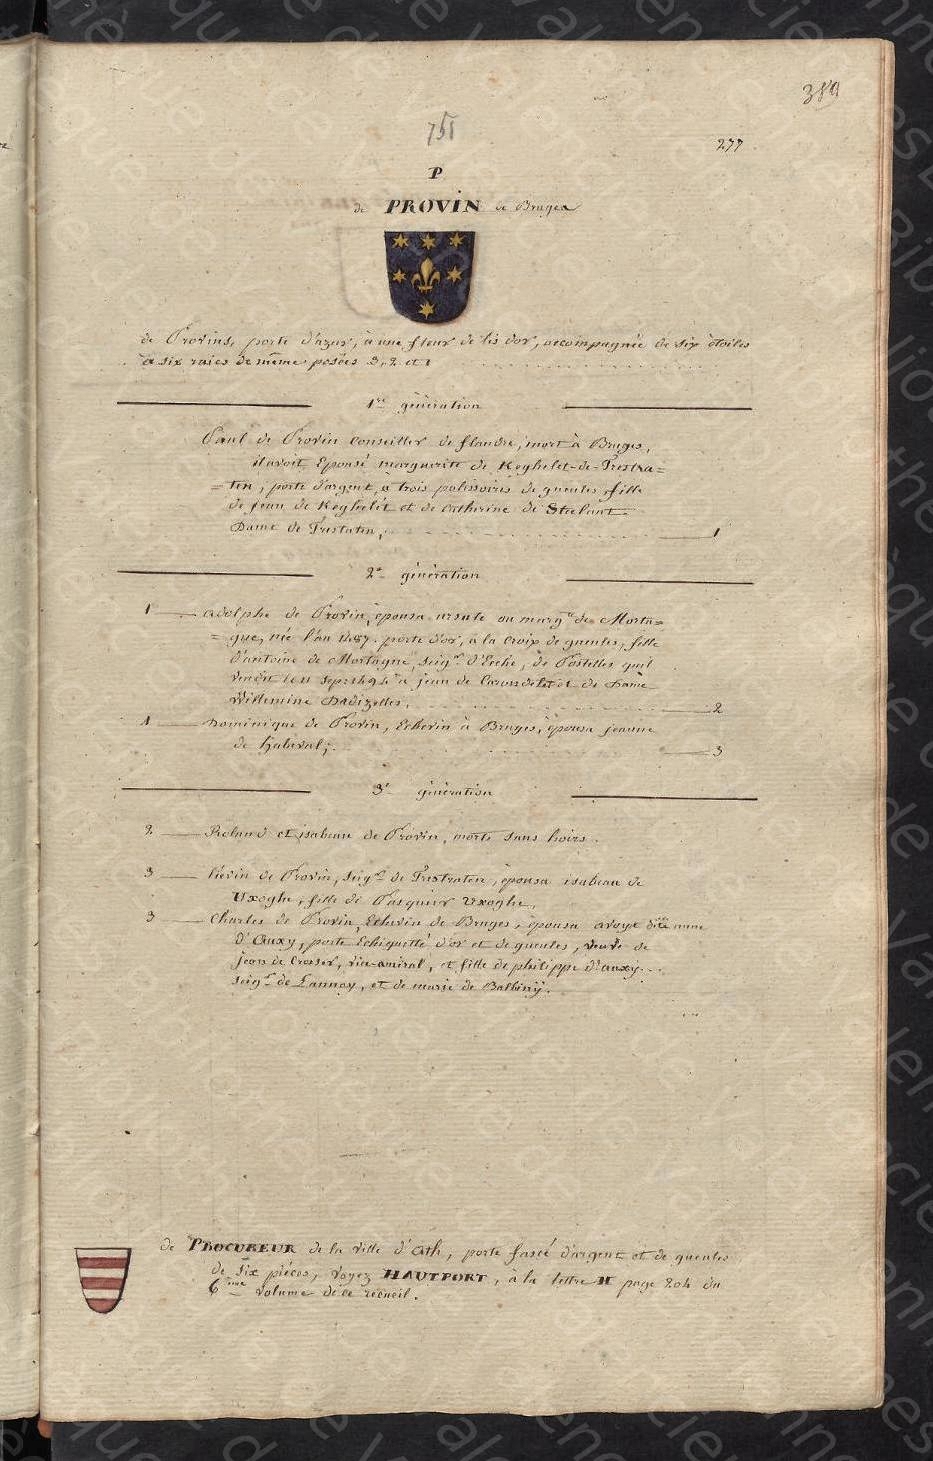 389
751
277
P
de PROVIN de Bruges
de Provins, porte d'azur, à une fleur de lis d'or, accompagnée de six étoiles
à six raies de même posées 3, 2 et 1
1re génération
Paul de Provin Conseiller de flandre, mort à Bruges,
il avoit Epousé marguerite de Keghelet-de-Trestra=
=ten, porte d'argent, à trois polissoires de gueules, fille
de jean de Keghelet et de Catherine de Steelant
Dame de Trestaten, 1
2e génération
1 adolphe de Provin, épousa ursule ou marg.te de Morta=
=gue, née l'an 1487. porte d'or, à la croix de gueules, fille
d'antoine de Mortagne, seig.r d'Esche, de Postelles qu'il
vendit le 11 Sep. 1494 à jean de Carondelet et de Dame
Willemine Dadizelles. 2
1 Dominique de Provin, Echevin à Bruges, épousa jeanne
de halaval; 3
3e génération
2 Roland et isabeau de Provin, morts sans hoirs.
3 liévin de Provin, seig.r de Trestraten, épousa isabeau de
Uxoghe, fille de Pasquier Uxoghe.
3 Charles de Provin, Echevin de Bruges, épousa avoye dite anne
d'Auxy, porte Echiquetté d'or et de gueules, veuve de
jean de Crosser, vice-amiral, et fille de philippe d'auxy
seig.r de Lannoy, et de marie de Balbiny.
de PROCUREUR de la ville d'Ath, porte fascé d'argent et de gueules
de six pièces, voyez HAUTPORT, à la lettre H page 204 du
6ème volume de ce recueil.
Bibliothèque de Valenciennes